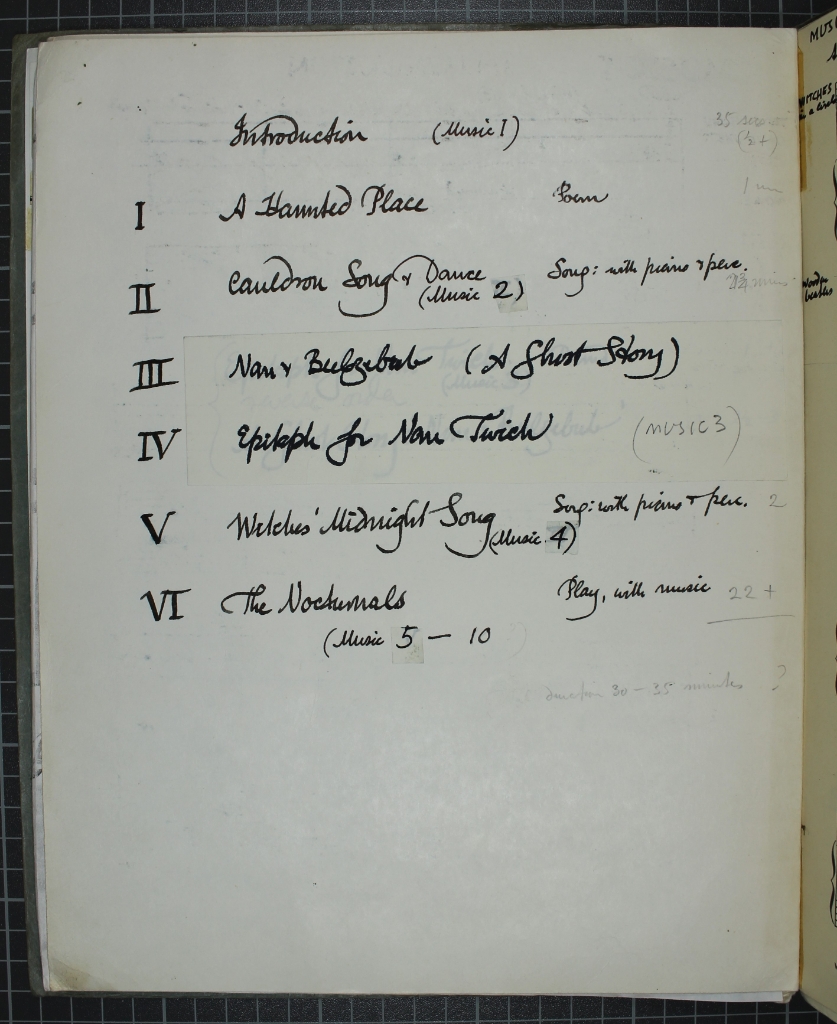 Introduction (Music 1) 35 seconds
(½ +)
I A Haunted Place Poem 1 min
II Cauldron Song & Dance Song: with piano & perc.
(Music 2) mins
III Nan & Beelzebub (A Ghost Story)
IV Epitaph for Nan Twich (MUSIC 3)
V Witches' Midnight Song Song: with piano & perc. 2
(Music 4)
VI The Nocturnals Play, with music 22 +
(Music 5 — 10
duration 30 - 35 minutes ?
WITCHES
Wooden
beaters